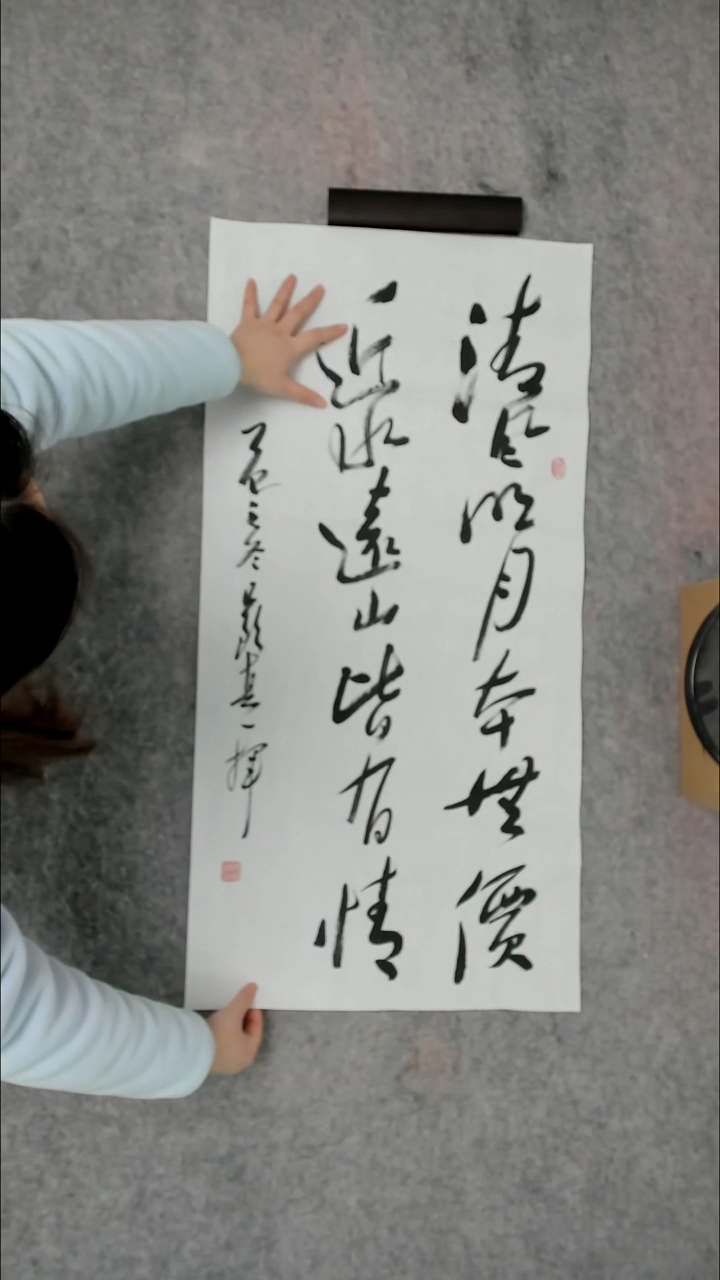 清風明月本無價
近水遠山皆有情
之冬嚴真一揮